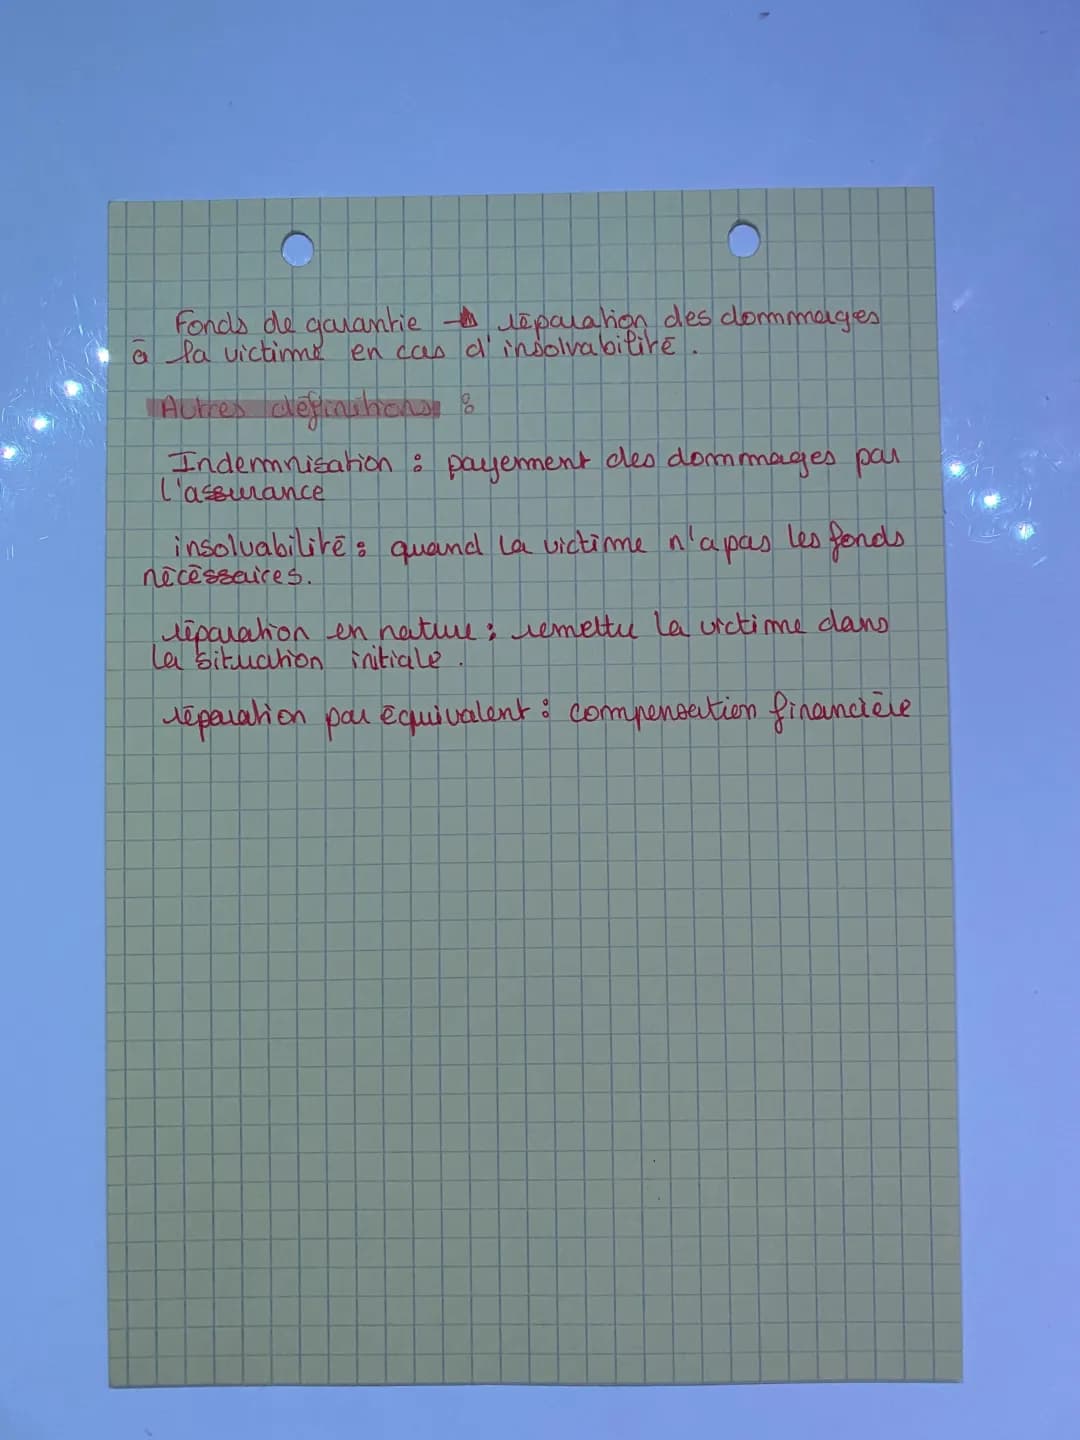 Fonds de garantie → réparation des dommages
à la victime en cas d'insolvabilité.
Autres définitions :
Indemnisation : payement des dommages par
l'assurance
insolvabilité : quand la victime n'a pas les fonds
nécéssaires.
réparation en nature : remettre la victime dans
la situation initiale.
réparation par équivalent : compensation financière